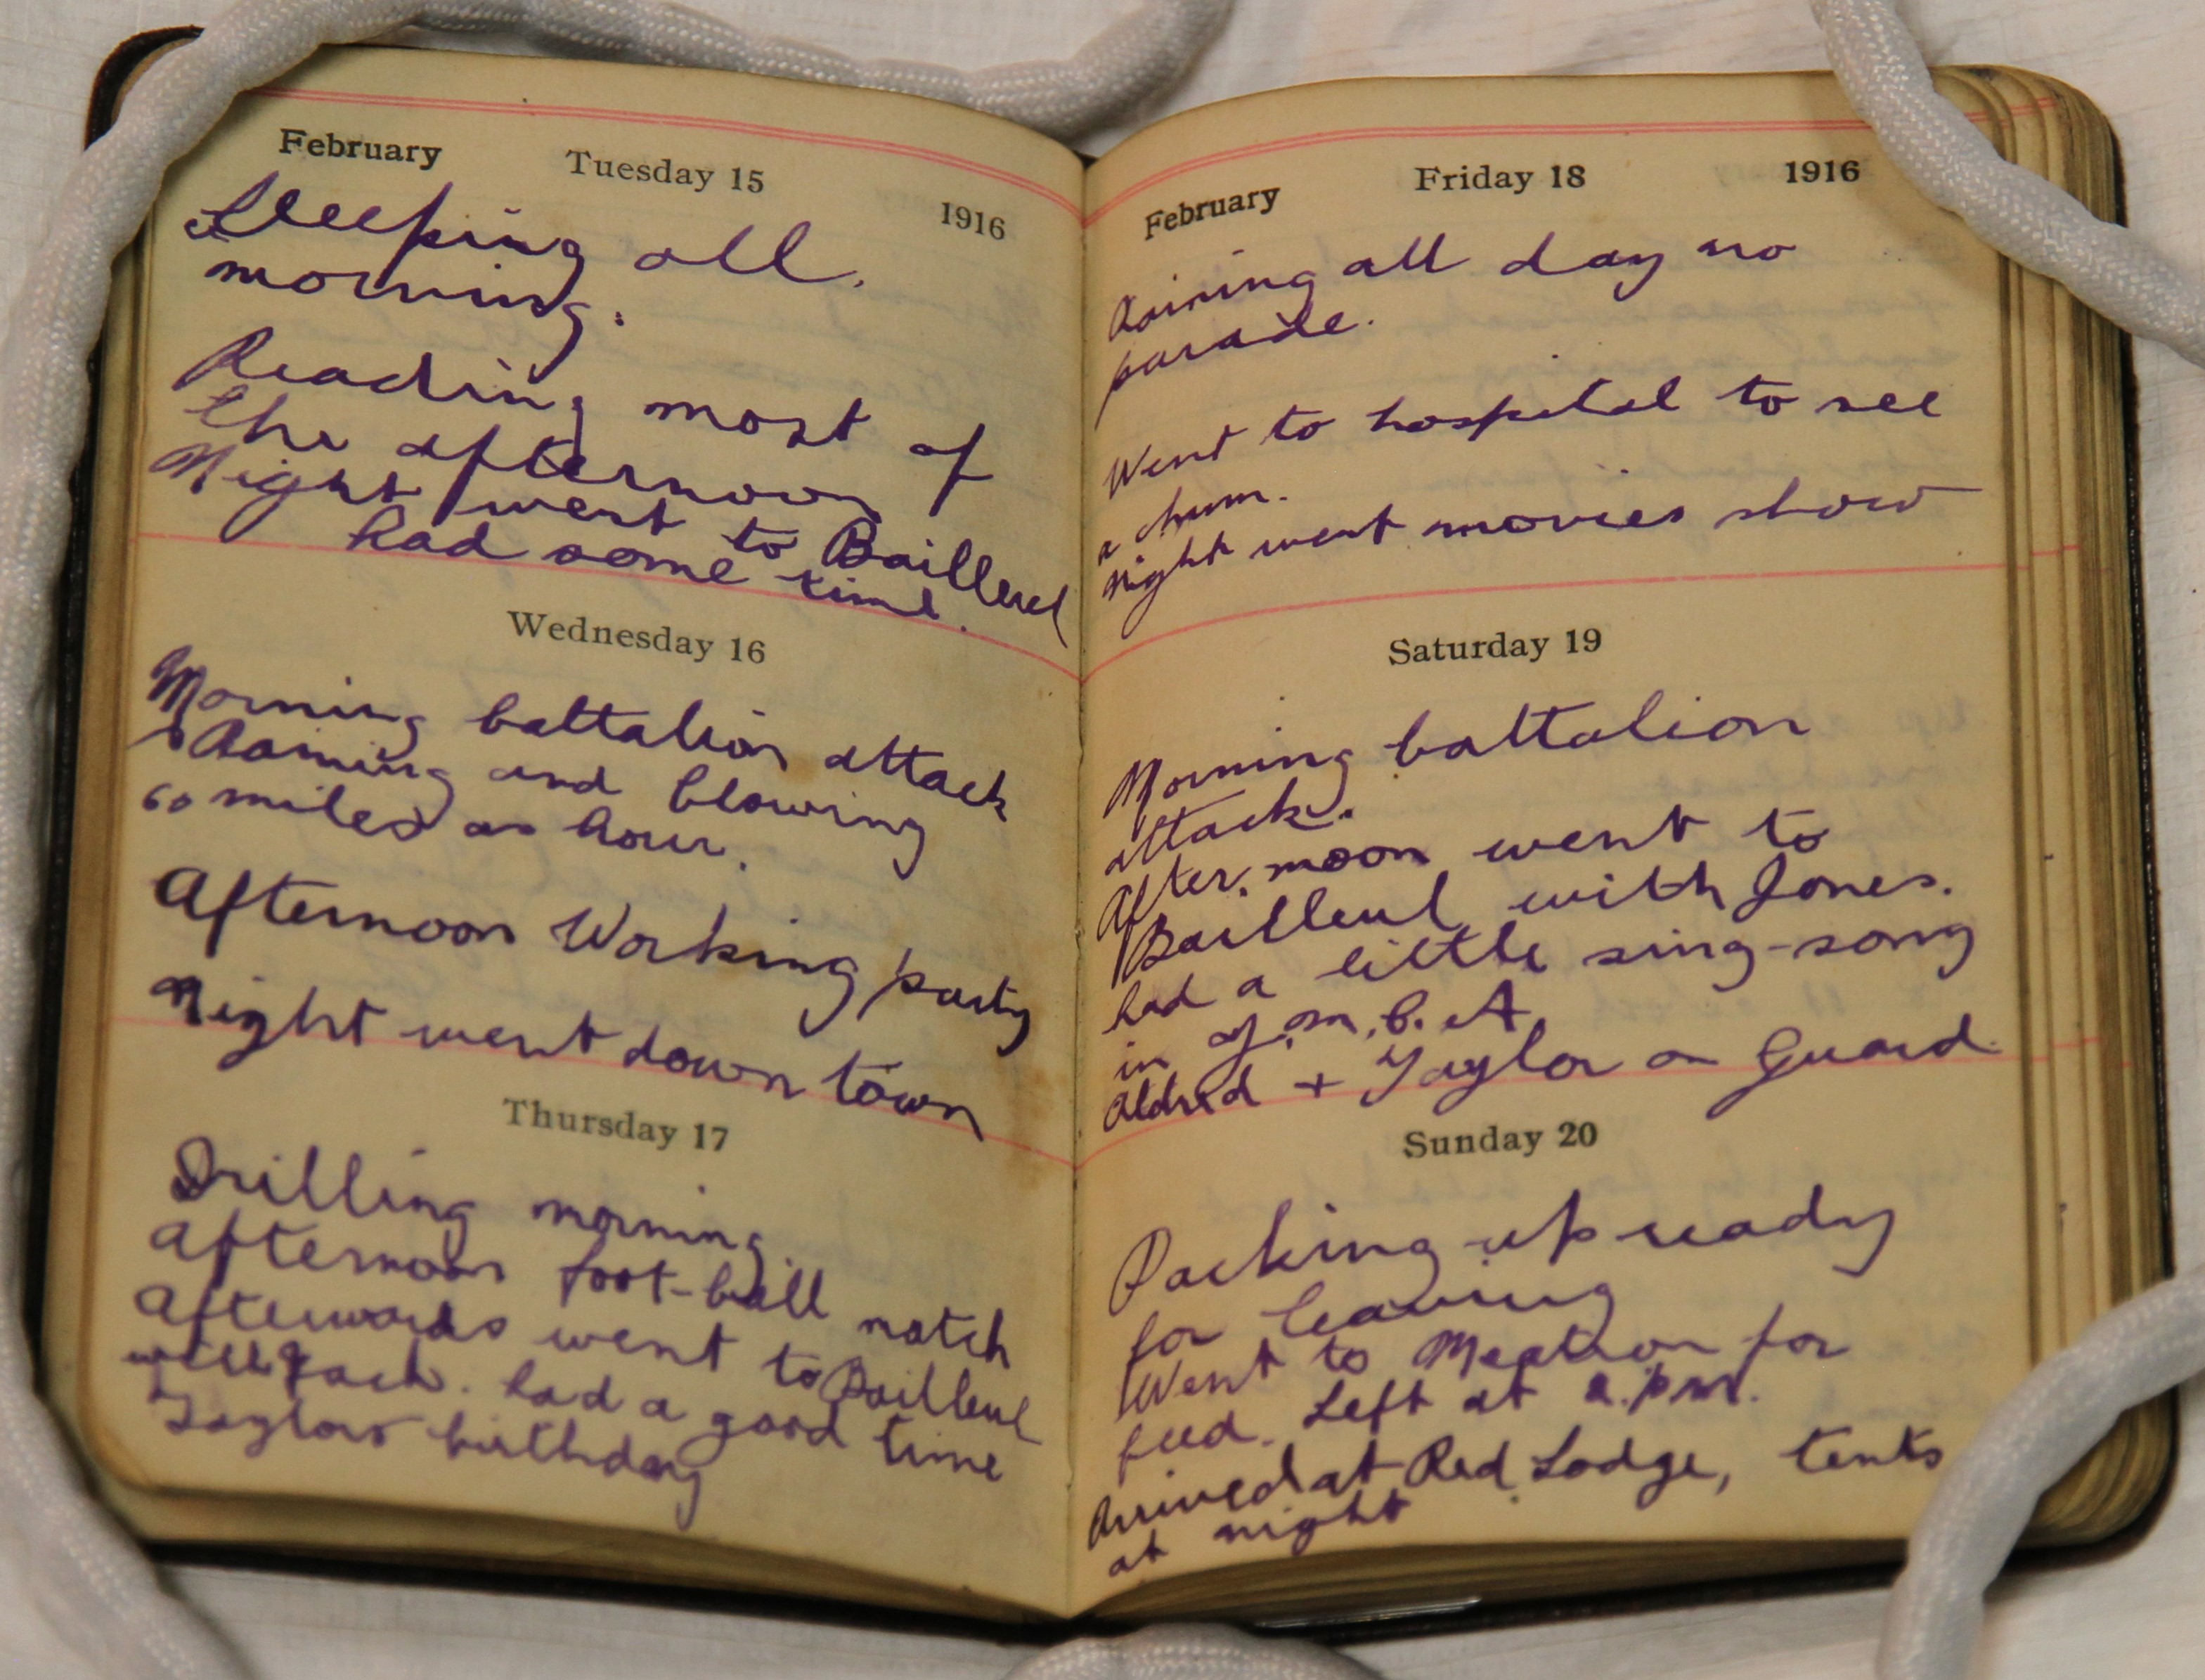 February Tuesday 15 1916
Sleeping all.
morning.
Reading most of
the afternoon
Night went to Bailleul
had some time.
Wednesday 16
Morning battalion attack
Raining and blowing
60 miles an hour.
Afternoon Working party
Night went down town
Thursday 17
Drilling morning.
Afternoon foot-ball match
Afterwards went to Bailleul
with Jack. had a good time
Taylors birthday
February Friday 18 1916
Raining all day no
parade.
Went to hospital to see
a chum.
Night went movies show
Saturday 19
Morning battalion
attack.
After.noon went to
Bailleul with Jones.
had a little sing-song
in Y.M.C.A.
Aldred + Taylor on Guard.
Sunday 20
Packing up ready
for leaving
Went to for
feed. Left at 2.pm.
Arrived at Red Lodge, tents
at night